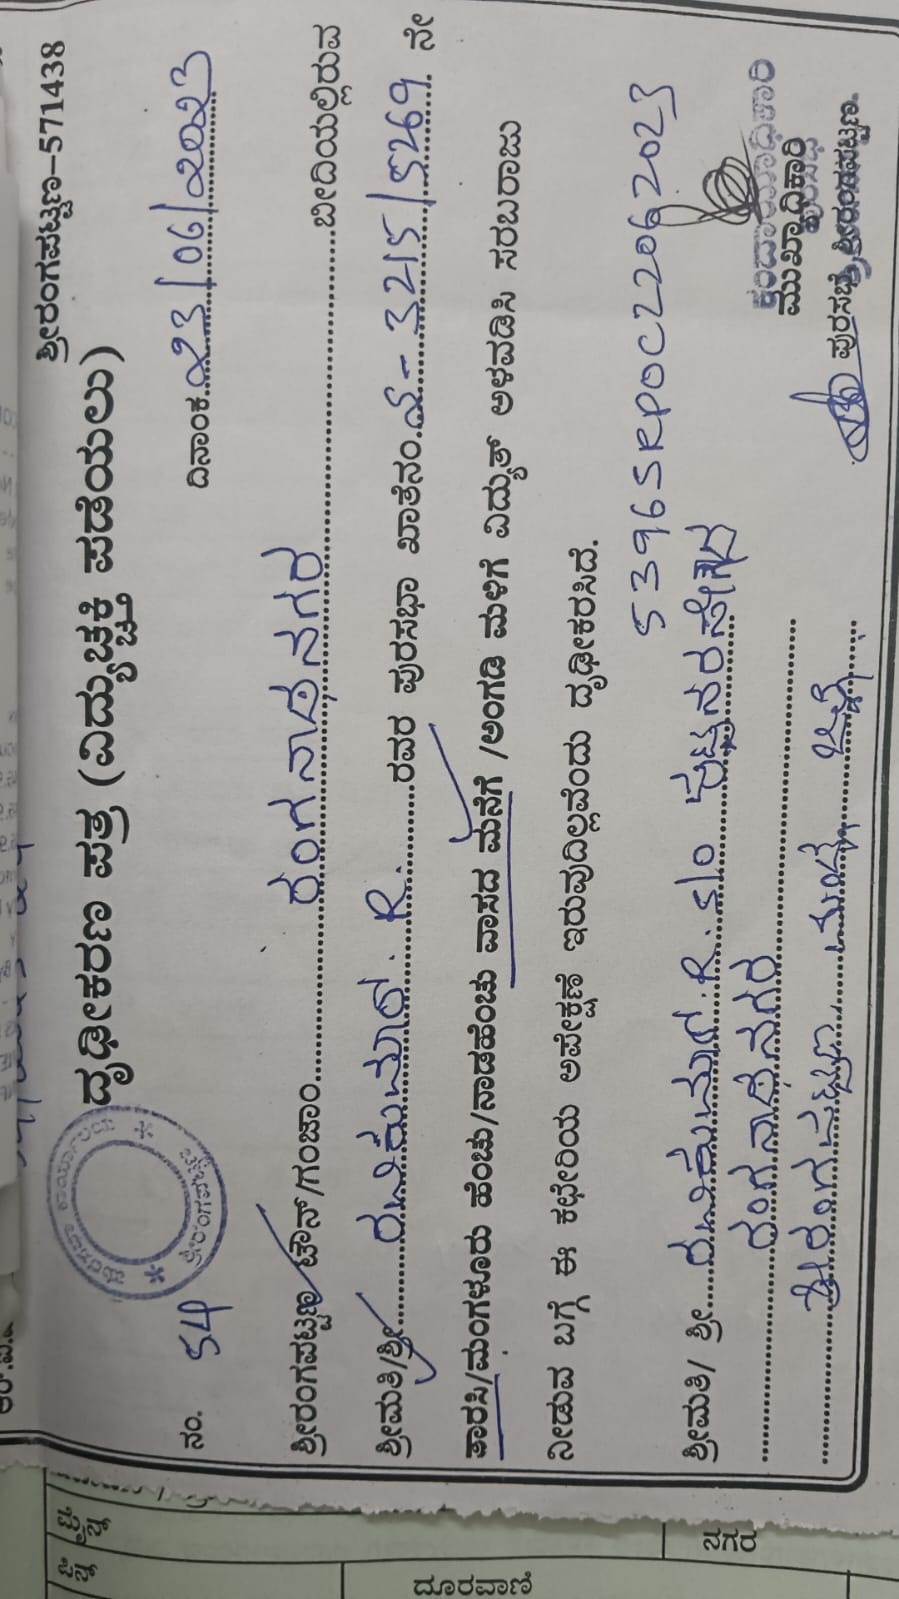 ಶ್ರೀರಂಗಪಟ್ಟಣ–571438
ದೃಢೀಕರಣ ಪತ್ರ (ವಿದ್ಯುಚ್ಛಕ್ತಿ ಪಡೆಯಲು)
ಪುರಸಭಾ ಕಾರ್ಯಾಲಯ * ಶ್ರೀರಂಗಪಟ್ಟಣ *
ನಂ. 54 ದಿನಾಂಕ 23/06/2023
ಶ್ರೀರಂಗಪಟ್ಟಣ ಟೌನ್/ಗಂಜಾಂ ರಂಗನಾಥನಗರ ಬೀದಿಯಲ್ಲಿರುವ
ಶ್ರೀಮತಿ/ಶ್ರೀ ರವಿಕುಮಾರ. R. ರವರ ಪುರಸಭಾ ಖಾತೆನಂ. 3215/5269 ನೇ
ತಾರಸಿ/ಮಂಗಳೂರು ಹೆಂಚು/ನಾಡಹೆಂಚು ವಾಸದ ಮನೆಗೆ /ಅಂಗಡಿ ಮಳಿಗೆ ವಿದ್ಯುತ್ ಅಳವಡಿಸಿ ಸರಬರಾಜು
ನೀಡುವ ಬಗ್ಗೆ ಈ ಕಛೇರಿಯ ಅಪೇಕ್ಷಣೆ ಇರುವುದಿಲ್ಲವೆಂದು ದೃಢೀಕರಿಸಿದೆ.
5396SRPOC22062023
ಶ್ರೀಮತಿ/ ಶ್ರೀ ರವಿಕುಮಾರ. R. S/O ಪುಟ್ಟನರಸೇಗೌಡ
ರಂಗನಾಥನಗರ
ಶ್ರೀರಂಗಪಟ್ಟಣ
ಕಂದಾಯಾಧಿಕಾರಿ
ಮುಖ್ಯಾಧಿಕಾರಿ
ಪುರಸಭೆ, ಶ್ರೀರಂಗಪಟ್ಟಣ.
ಪಿನ್
ಮೈಸ್
ದೂರವಾಣಿ
ನಗರ